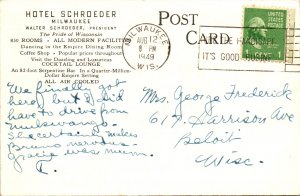 HOTEL SCHROEDER
MILWAUKEE
WALTER SCHROEDER, PRESIDENT
The Pride of Wisconsin
810 ROOMS - ALL MODERN FACILITIES
Dancing in the Empire Dining Room
Coffee Shop - Popular prices throughout
Visit the Dancing and Luxurious
COCKTAIL LOUNGE
An 82-foot Serpentine Bar in a Quarter-Million-
Dollar Empire Setting
ALL AIR COOLED
POST
CARD
MILWAUKEE
AUG 12
8 PM
1949
WIS.
IT'S GOOD
We finally got
here but I did
have to drive from
Mukwonago.
It certainly makes
Bruno nervous.
Gracie was mum.
Mrs. George Frederick
617 Harrison Ave
Beloit
Wisc.